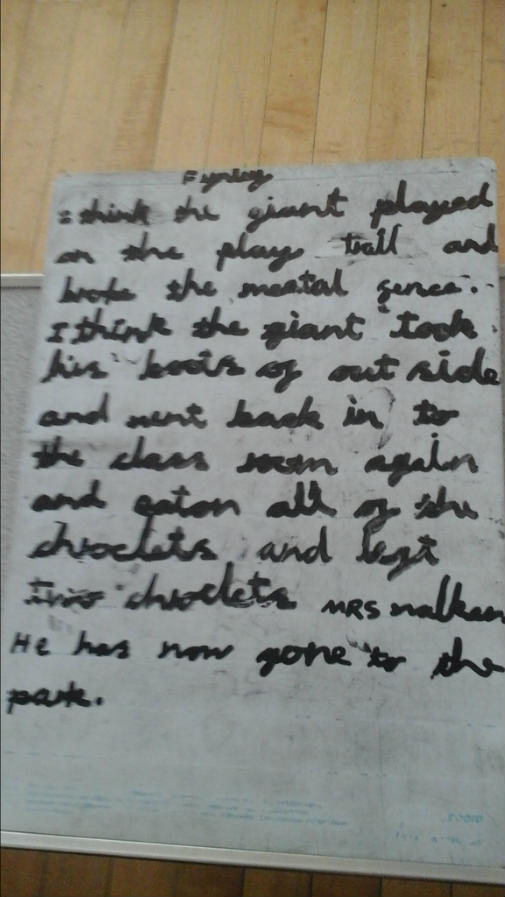 Fynley
I think the giant played
on the play trall and
broke the meatal fence.
I think the giant took
his boots of out side
and went back in to
the class room again
and eaton all of the
choclets and left
two choclets MRS walken
He has now gone to the
park.